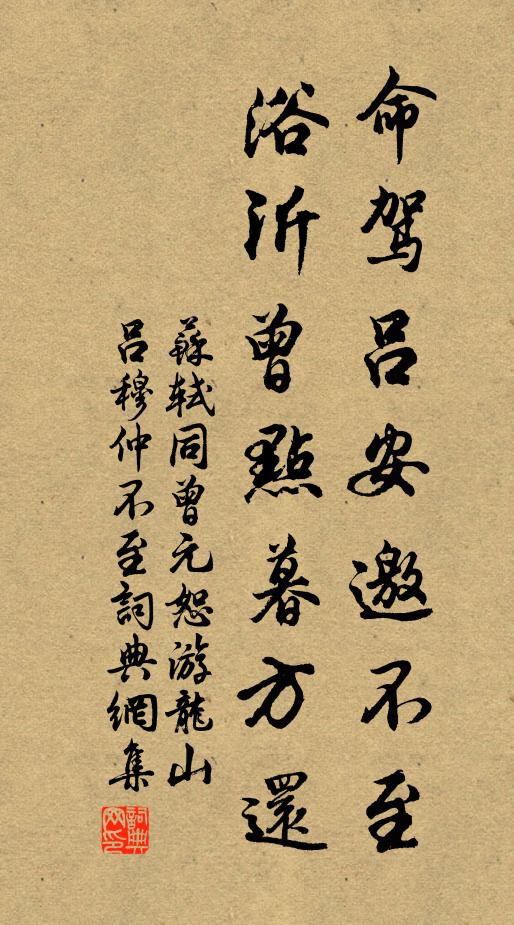 命駕呂安邀不至
浴沂曾點暮方還
蘇軾同曾元恕游龍山
呂穆仲不至詞典網集
詞典网印